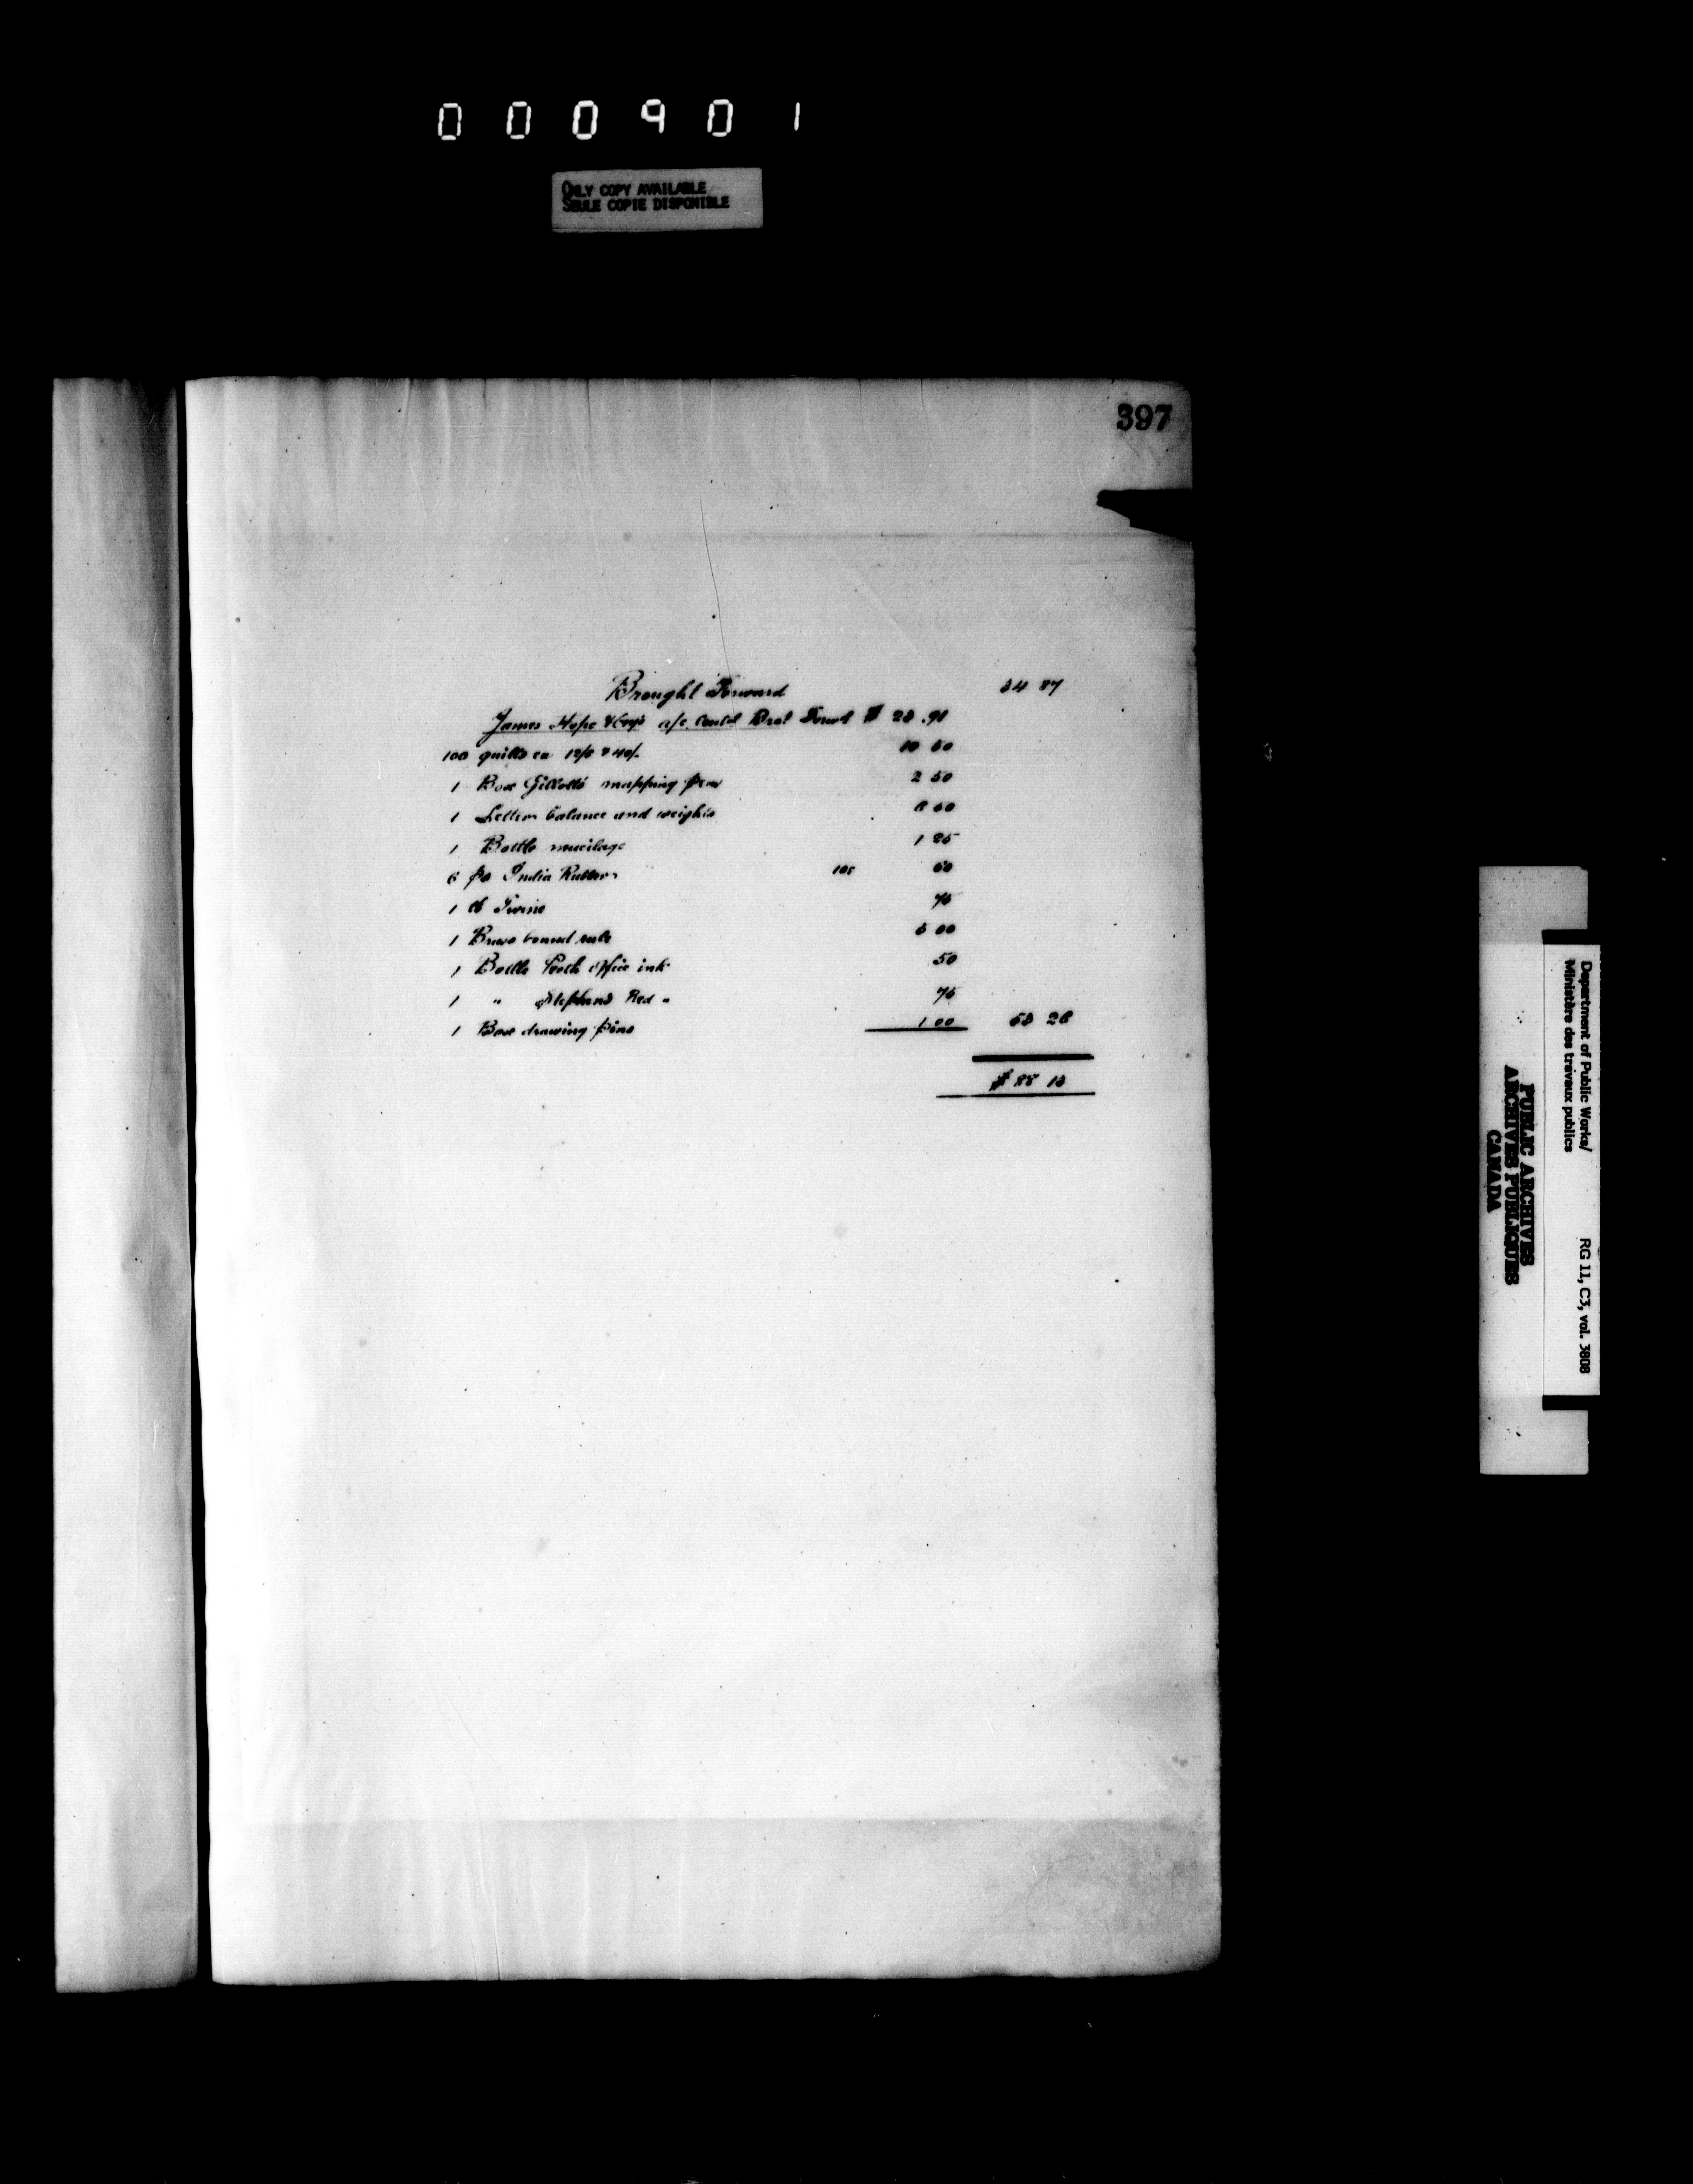 000901
ONLY COPY AVAILABLE
SEULE COPIE DISPONIBLE
397
Brought Forward 34 87
James Hope & Coy's a/c Contd Brot Forwd $ 23.91
100 quills ea 12/6 & 40/- 10 50
1 Box Gillott's mapping pens 2 50
1 Letter balance and weights 6 50
1 Bottle mucilage 1 25
6 ps India Rubber 10c 60
1 lb Twine 75
1 Brass bound rule 5 00
1 Bottle office ink 50
1 " Stephens Red " 75
1 Box drawing pins 1 00 53 26
$ 88 13
Department of Public Works/
Ministère des travaux publics
RG 11, C3, vol. 3808
PUBLIC ARCHIVES
ARCHIVES PUBLIQUES
CANADA